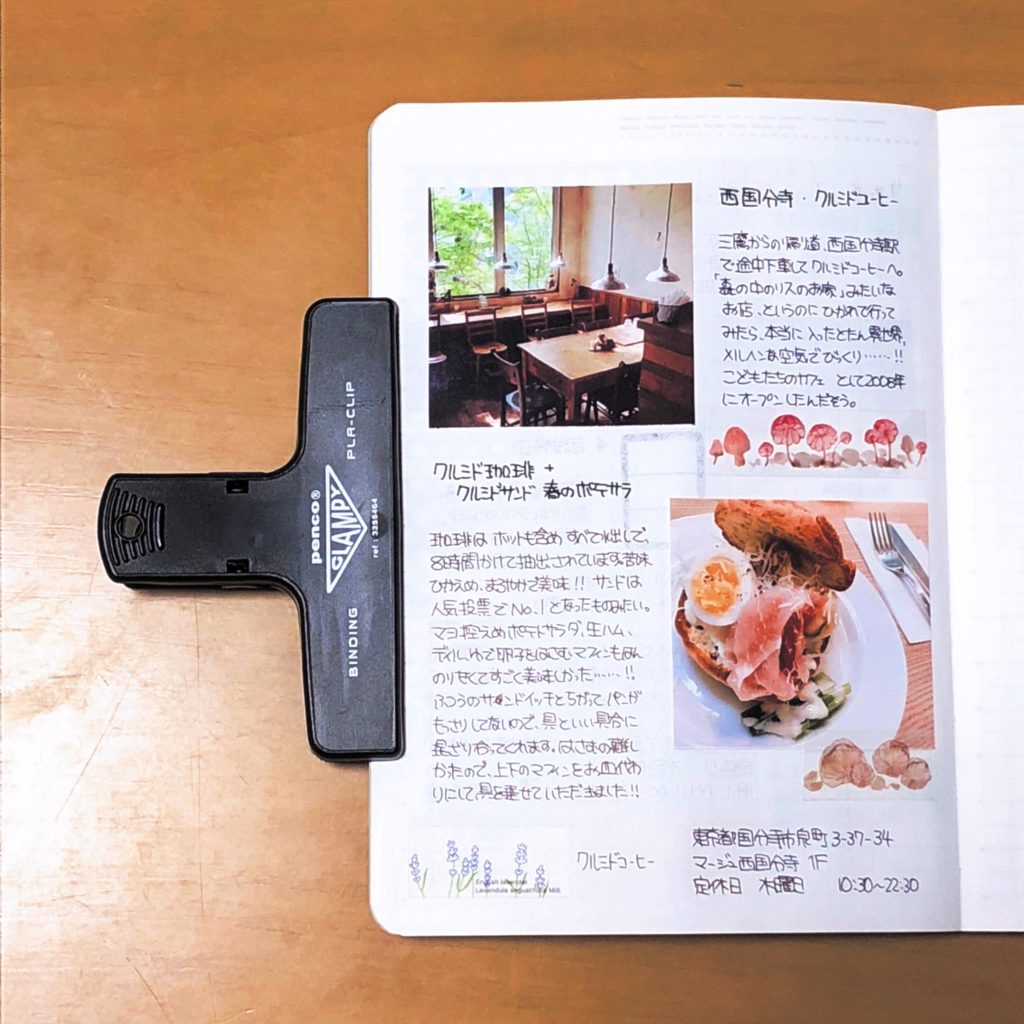 西国分寺・クルミドコーヒー
三鷹からの帰り道、西国分寺駅
で途中下車してクルミドコーヒーへ。
「森の中のリスのお家」みたいな
お店、というのにひかれて行って
みたら、本当に入ったとたん異世界。
メルヘンな空気でびっくり……!!
こどもたちのカフェ として2008年
にオープンしたんだそう。
クルミド珈琲 +
クルミドサンド 春のポテサラ
珈琲は ホットも含め すべて水出しで、
8時間かけて抽出されています。苦味
ひかえめ、まろやかで美味!! サンドは
人気投票でNo.1となったものみたい。
マヨ控えめポテトサラダ、生ハム、
ディル、ゆで卵子をはさむマフィンもほん
のり甘くてすごく美味しかった……!!
ふつうのサンドイッチとちがってパンが
もさりしてないので、具といい具合に
混ざり合ってくれます。はさむの難し
かたので、上下のマフィンをお皿代わ
りにして具を乗せていただきました!!
English lavender
Lavandula angustifolia Mill.
クルミドコーヒー
東京都国分寺市泉町3-37-34
マージュ西国分寺 1F
定休日 木曜日 10:30~22:30
penco®
CLAMPY
PLA-CLIP
BINDING
ref : 3255464